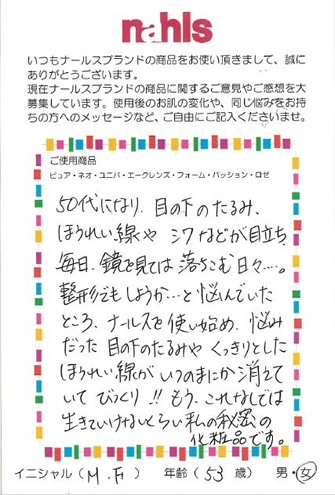 nahls
いつもナールスブランドの商品をお使い頂きまして、誠に
ありがとうございます。
現在ナールスブランドの商品に関するご意見やご感想を大
募集しています。使用後のお肌の変化や、同じ悩みをお持
ちの方へのメッセージなど、ご自由にご記入くださいませ。
ご使用商品
ピュア・ネオ・ユニバ・エークレンズ・フォーム・パッション・ロゼ
50代になり、目の下のたるみ、
ほうれい線や シワなどが目立ち
毎日、鏡を見ては 落ちこむ日々…。
整形でもしようか…と悩んでいた
ところ、ナールスを使い始め、悩み
だった 目の下のたるみや くっきりとした
ほうれい線が いつのまにか消えて
いて びっくり!! もう、これなしでは
生きていけないくらい私の秘密の
化粧品です。
イニシャル(M.F) 年齢(53歳) 男・女